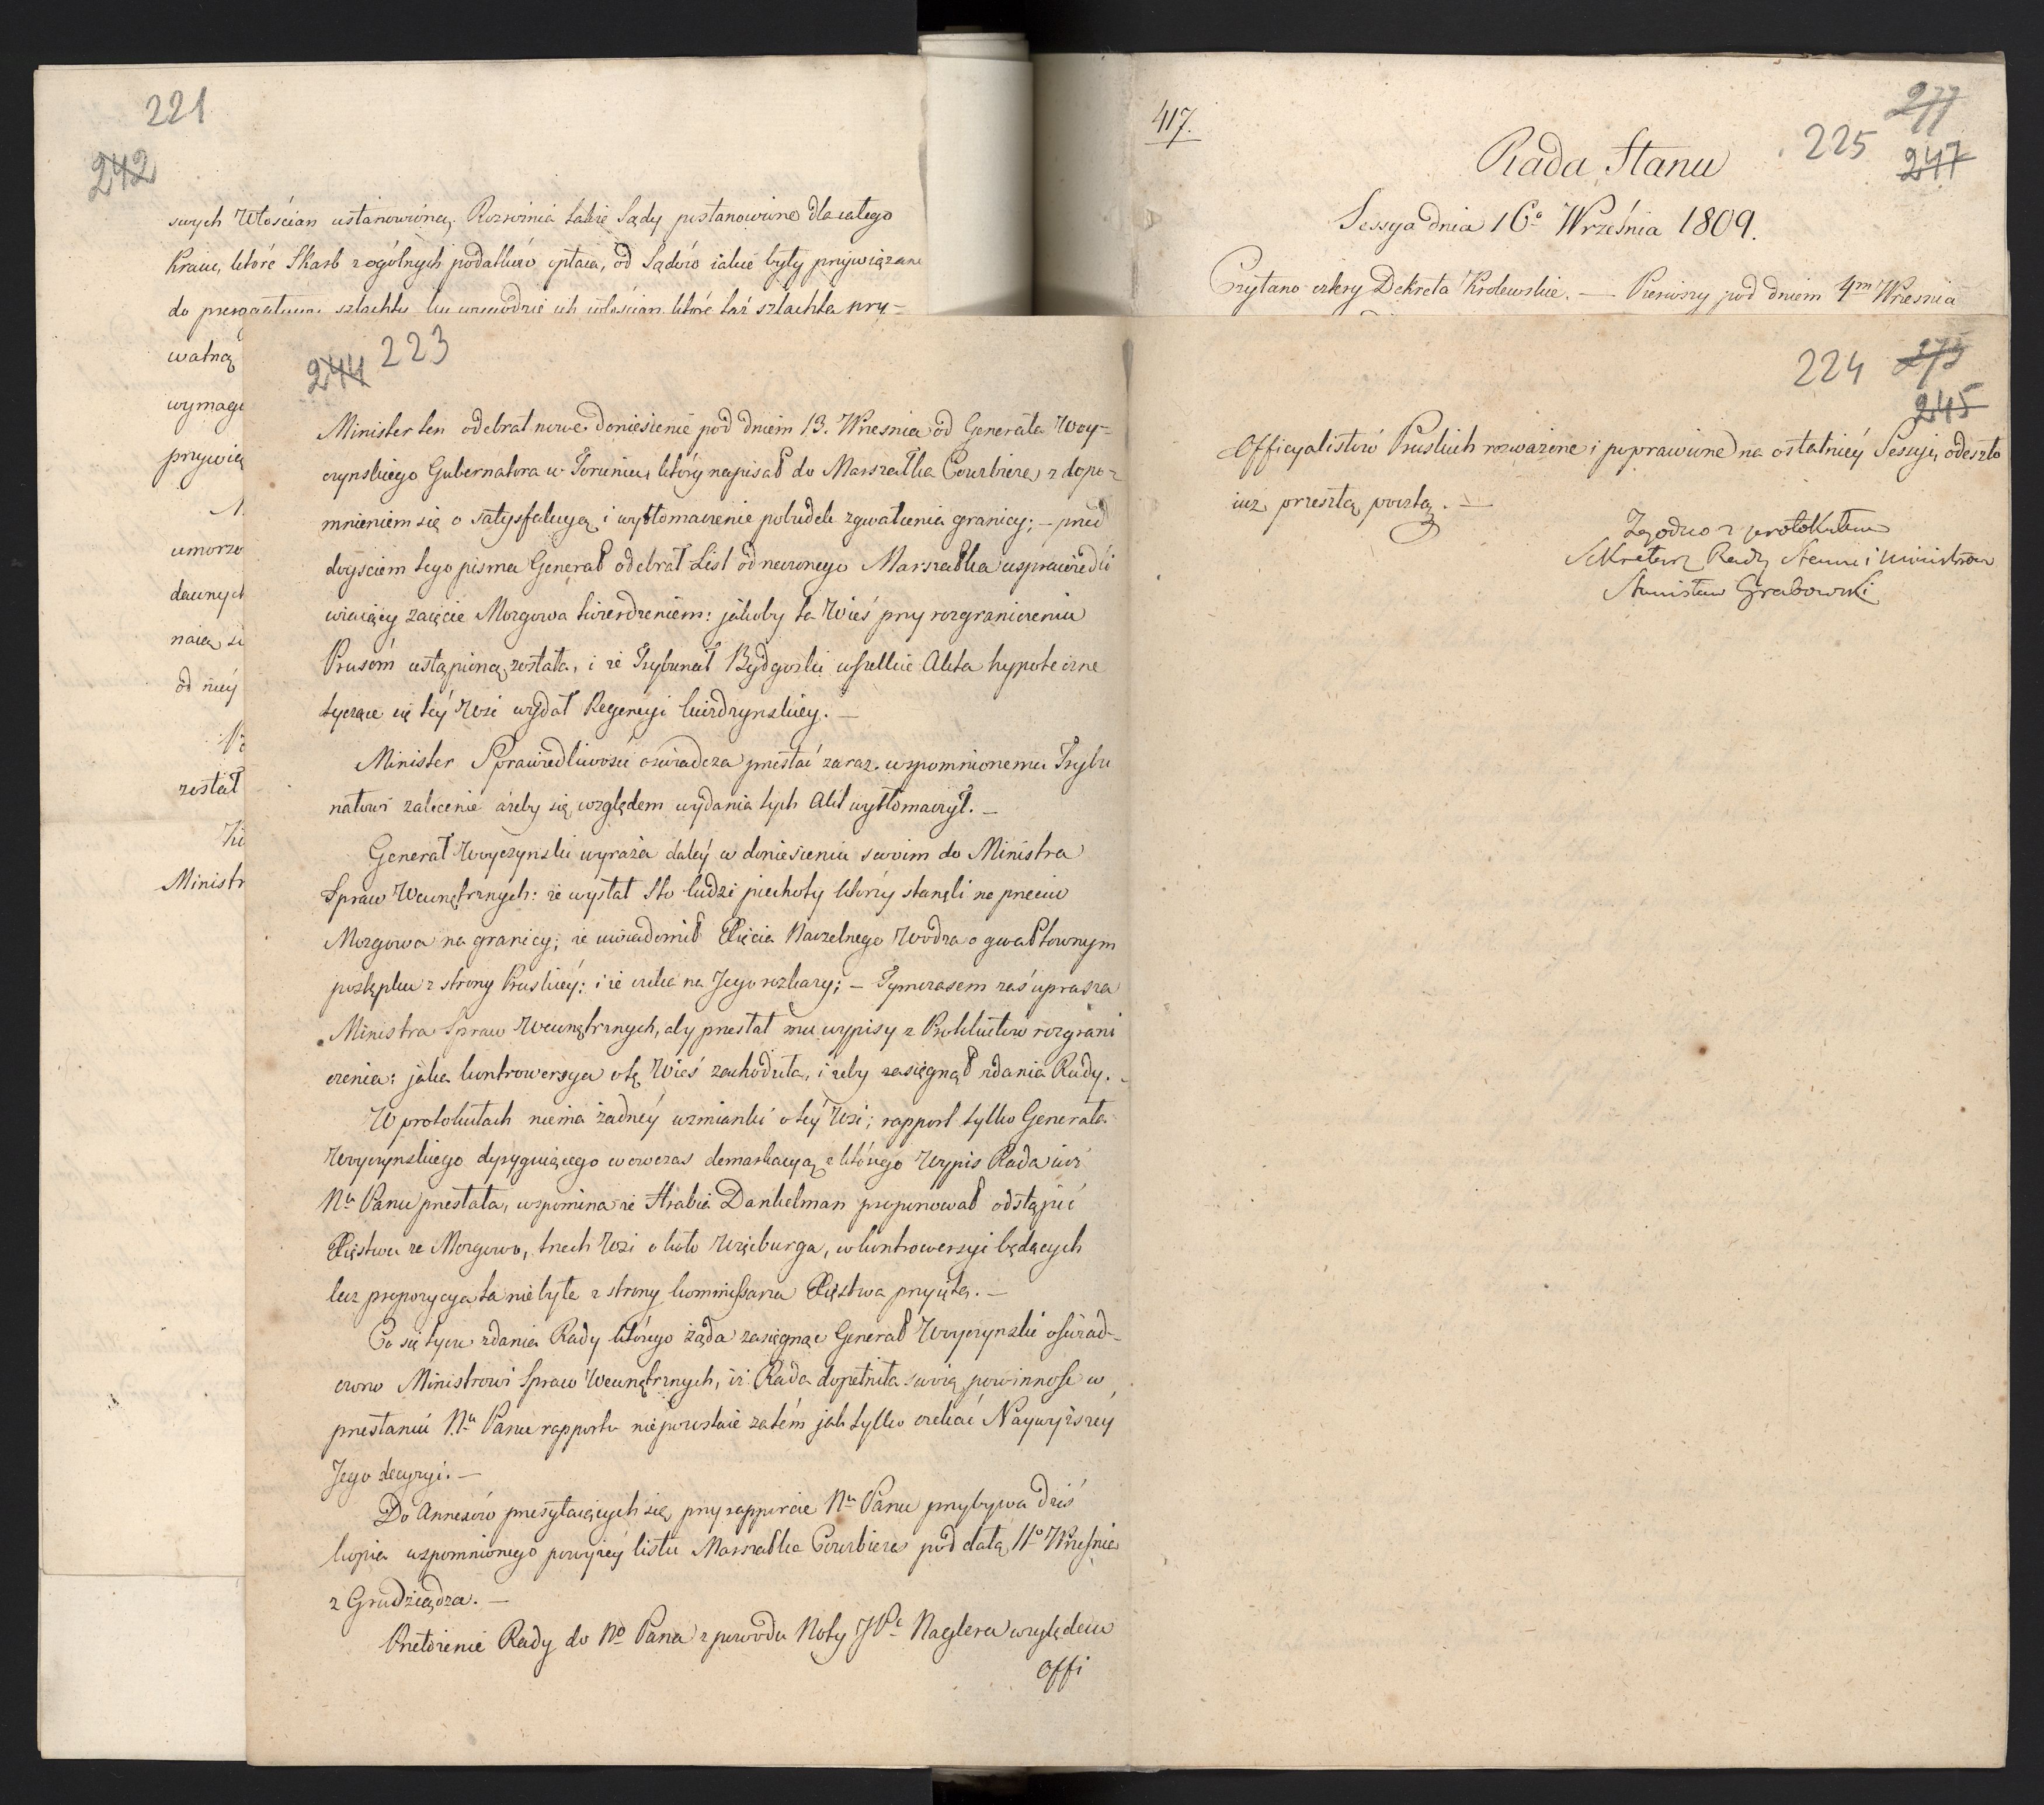 221
242
swych Włościan ustanowioną. Rozróżnia takie Sądy postanowione dla całego
Kraiu, które Skarb z ogólnych podatków opłaca, od Sądów iakie były przywiązane
do prerogatywy szlachty ku wygodzie ich włościan które taż szlachta pry-
watną
wymaga
przywią
umorzo
dawnych
naią si
od niey
został
Ministr
244 223
Minister ten odebrał nowe doniesienie pod dniem 13. Wrzesnia od Generała Woy-
czynskiego Gubernatora w Toruniu, który napisał do Marszałka Courbiere, z dopo-
mnieniem się o satysfakcyą i wytłomaczenie pobudek zgwałcenia granicy; – przed
doyściem tego pisma Generał odebrał List od rzeczonego Marszałka usprawiedli
wiaiący zaięcie Mozgowa twierdzeniem: jakoby ta Wieś przy rozgraniczeniu
Prusóm ustąpioną została, i że Trybunał Bydgoski wszelkie Akta hypoteczne
tyczące się téy Wsi wydał Regencyi kwidzynskiey. –
Minister Sprawiedliwości oświadcza przesłać zaraz wspomnionemu Trybu
nałowi zalecenie ażeby się względem wydania tych Akt wytłomaczył. –
Generał Woyczynski wyraża daléy w doniesieniu swoim do Ministra
Spraw Wewnętrznych: że wysłał Sto ludzi piechoty którzy stanęli na przeciw
Mozgowa na granicy; że uwiadomił Xięcia Naczelnego Wodza o gwałtownym
postępku z strony Pruskiéy: i że czeka na Jego rozkazy; – Tymczasem zaś uprasza
Ministra Spraw Wewnętrznych, aby przesłał mu wypisy z Protokułów rozgrani
czenia: jaka kontrowersya o tę Wieś zachodziła, i żeby zasięgnął zdania Rady. –
W protokułach niema żadnéy wzmianki o téy Wsi; rapport tylko Generała
Woyczynskiego dyrygującego wowczas demarkacyą z którego Wypis Rada iuż
Nu Panu przesłała, wspomina że Hrabia Dankelman proponował odstąpić
Xięstwu za Mozgowo, trzech Wsi około Więcburga, w kontrowersyi będących
lecz propozycya ta nie była z strony kommissarza Xięstwa przyjętą. –
Co się tycze zdania Rady którego żąda zasięgnąć Generał Woyczynski oświad-
czono Ministrowi Spraw Wewnętrznych, iż Rada dopełniła swoią powinność w
przesłaniu Nu Panu rapportu nie pozostaie zatém jak tylko czekać Naywyższéy
Jego decyzyi. –
Do Annexów przesyłaiących się przy rapporcie Nu Panu przybywa dziś
kopia wspomnionego powyżéy listu Marszałka Courbiere pod datą 11o Wrześnie
z Grudziądza. –
Przełożenie Rady do No Pana z powodu Noty JPa Naglera względem
Offi
417.
277
225
247
Rada Stanu
Sessya dnia 16o Września 1809.
Czytano cztery Dekreta Krolewskie. — Pierwszy pod dniem 4m Wrzesnia
224 273
245
Officyalistów Pruskich rozważone i poprawione na ostatniéy Sessyi, odeszło
iuż przeszłą pocztą. –
Zgodno z protokułem
Sekretarz Rady Stanu i Ministrów
Stanisław Grabowski